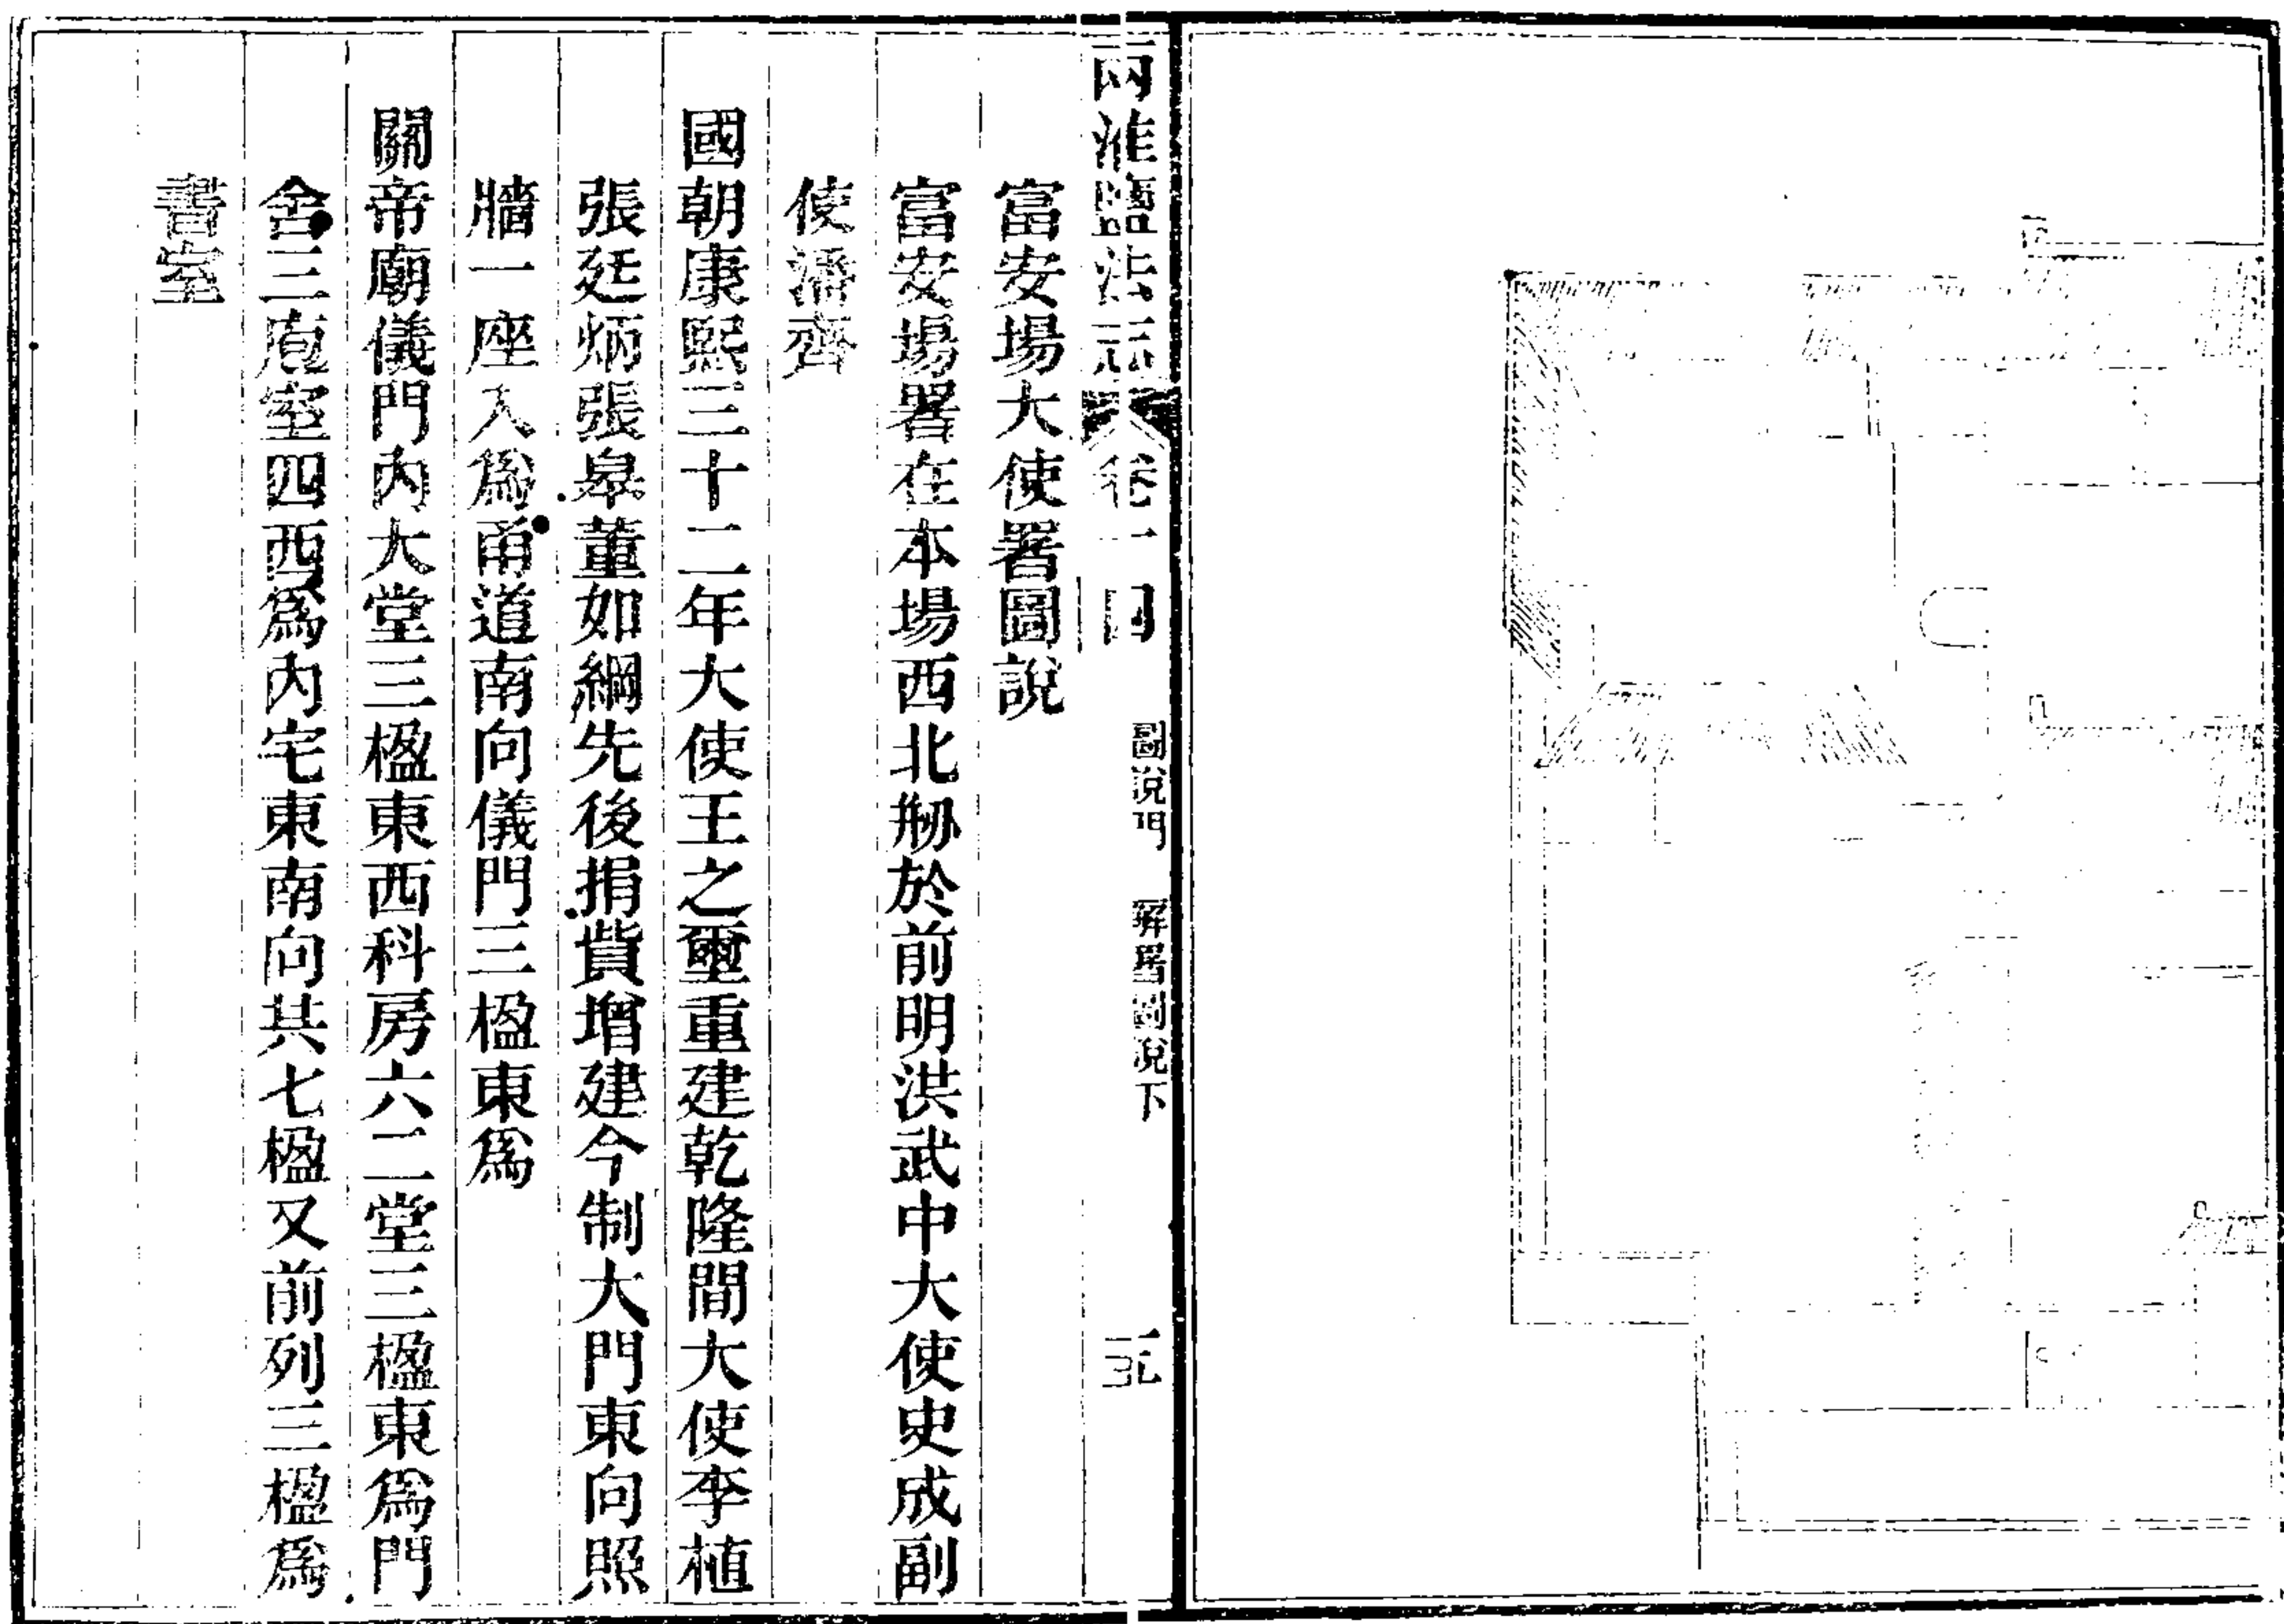 兩淮鹽法志 卷十四 圖說門 廨署圖說下
富安場大使署圖說
富安場署在本場西北剏於前明洪武中大使史成副
使潘齊
國朝康熙三十二年大使王之璽重建乾隆間大使李植
張廷炳張皋董如綱先後捐貲增建今制大門東向照
牆一座入爲甬道南向儀門三楹東爲
關帝廟儀門內大堂三楹東西科房六二堂三楹東爲門
舍三庖室四西爲內宅東南向共七楹又前列三楹爲
書室